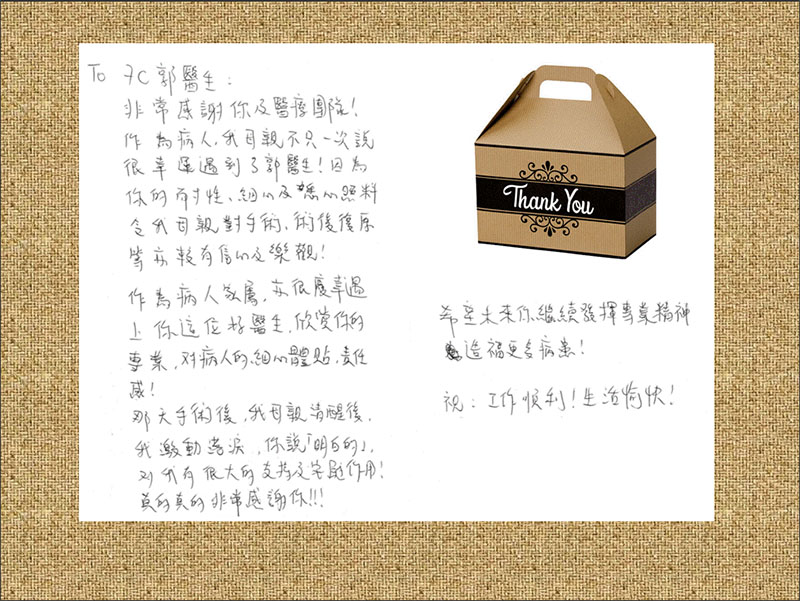 To 7C 郭醫生：
非常感謝你及醫療團隊！
作為病人，我母親不只一次說
很幸運遇到了郭醫生！因為
你的耐性、細心及悉心照料
令我母親對手術、術後復原
等亦較有信心及樂觀！
作為病人家屬，亦很慶幸遇
上你這位好醫生，欣賞你的
專業，对病人的細心體貼，責任
感！
那天手術後，我母親清醒後，
我激動落淚，你說「明白的」，
对我有很大的支持及安慰作用！
真的真的非常感謝你!!!
Thank You
希望未來你繼續發揮專業精神
造福更多病患！
祝：工作順利！生活愉快！